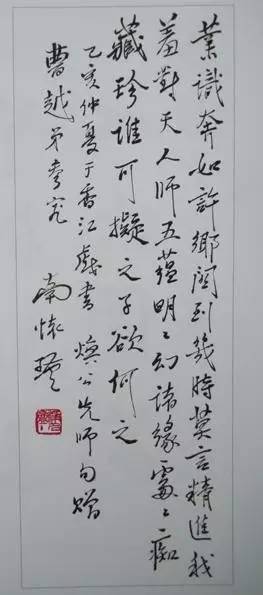 業識奔如許鄉關到幾時莫言精進我
羞對天人師五蘊明〻幻諸緣處〻痴
藏珍誰可擬之子欲何之
乙亥仲夏于香江戲書 煥公先師句贈
曹越弟參究
南懷瑾